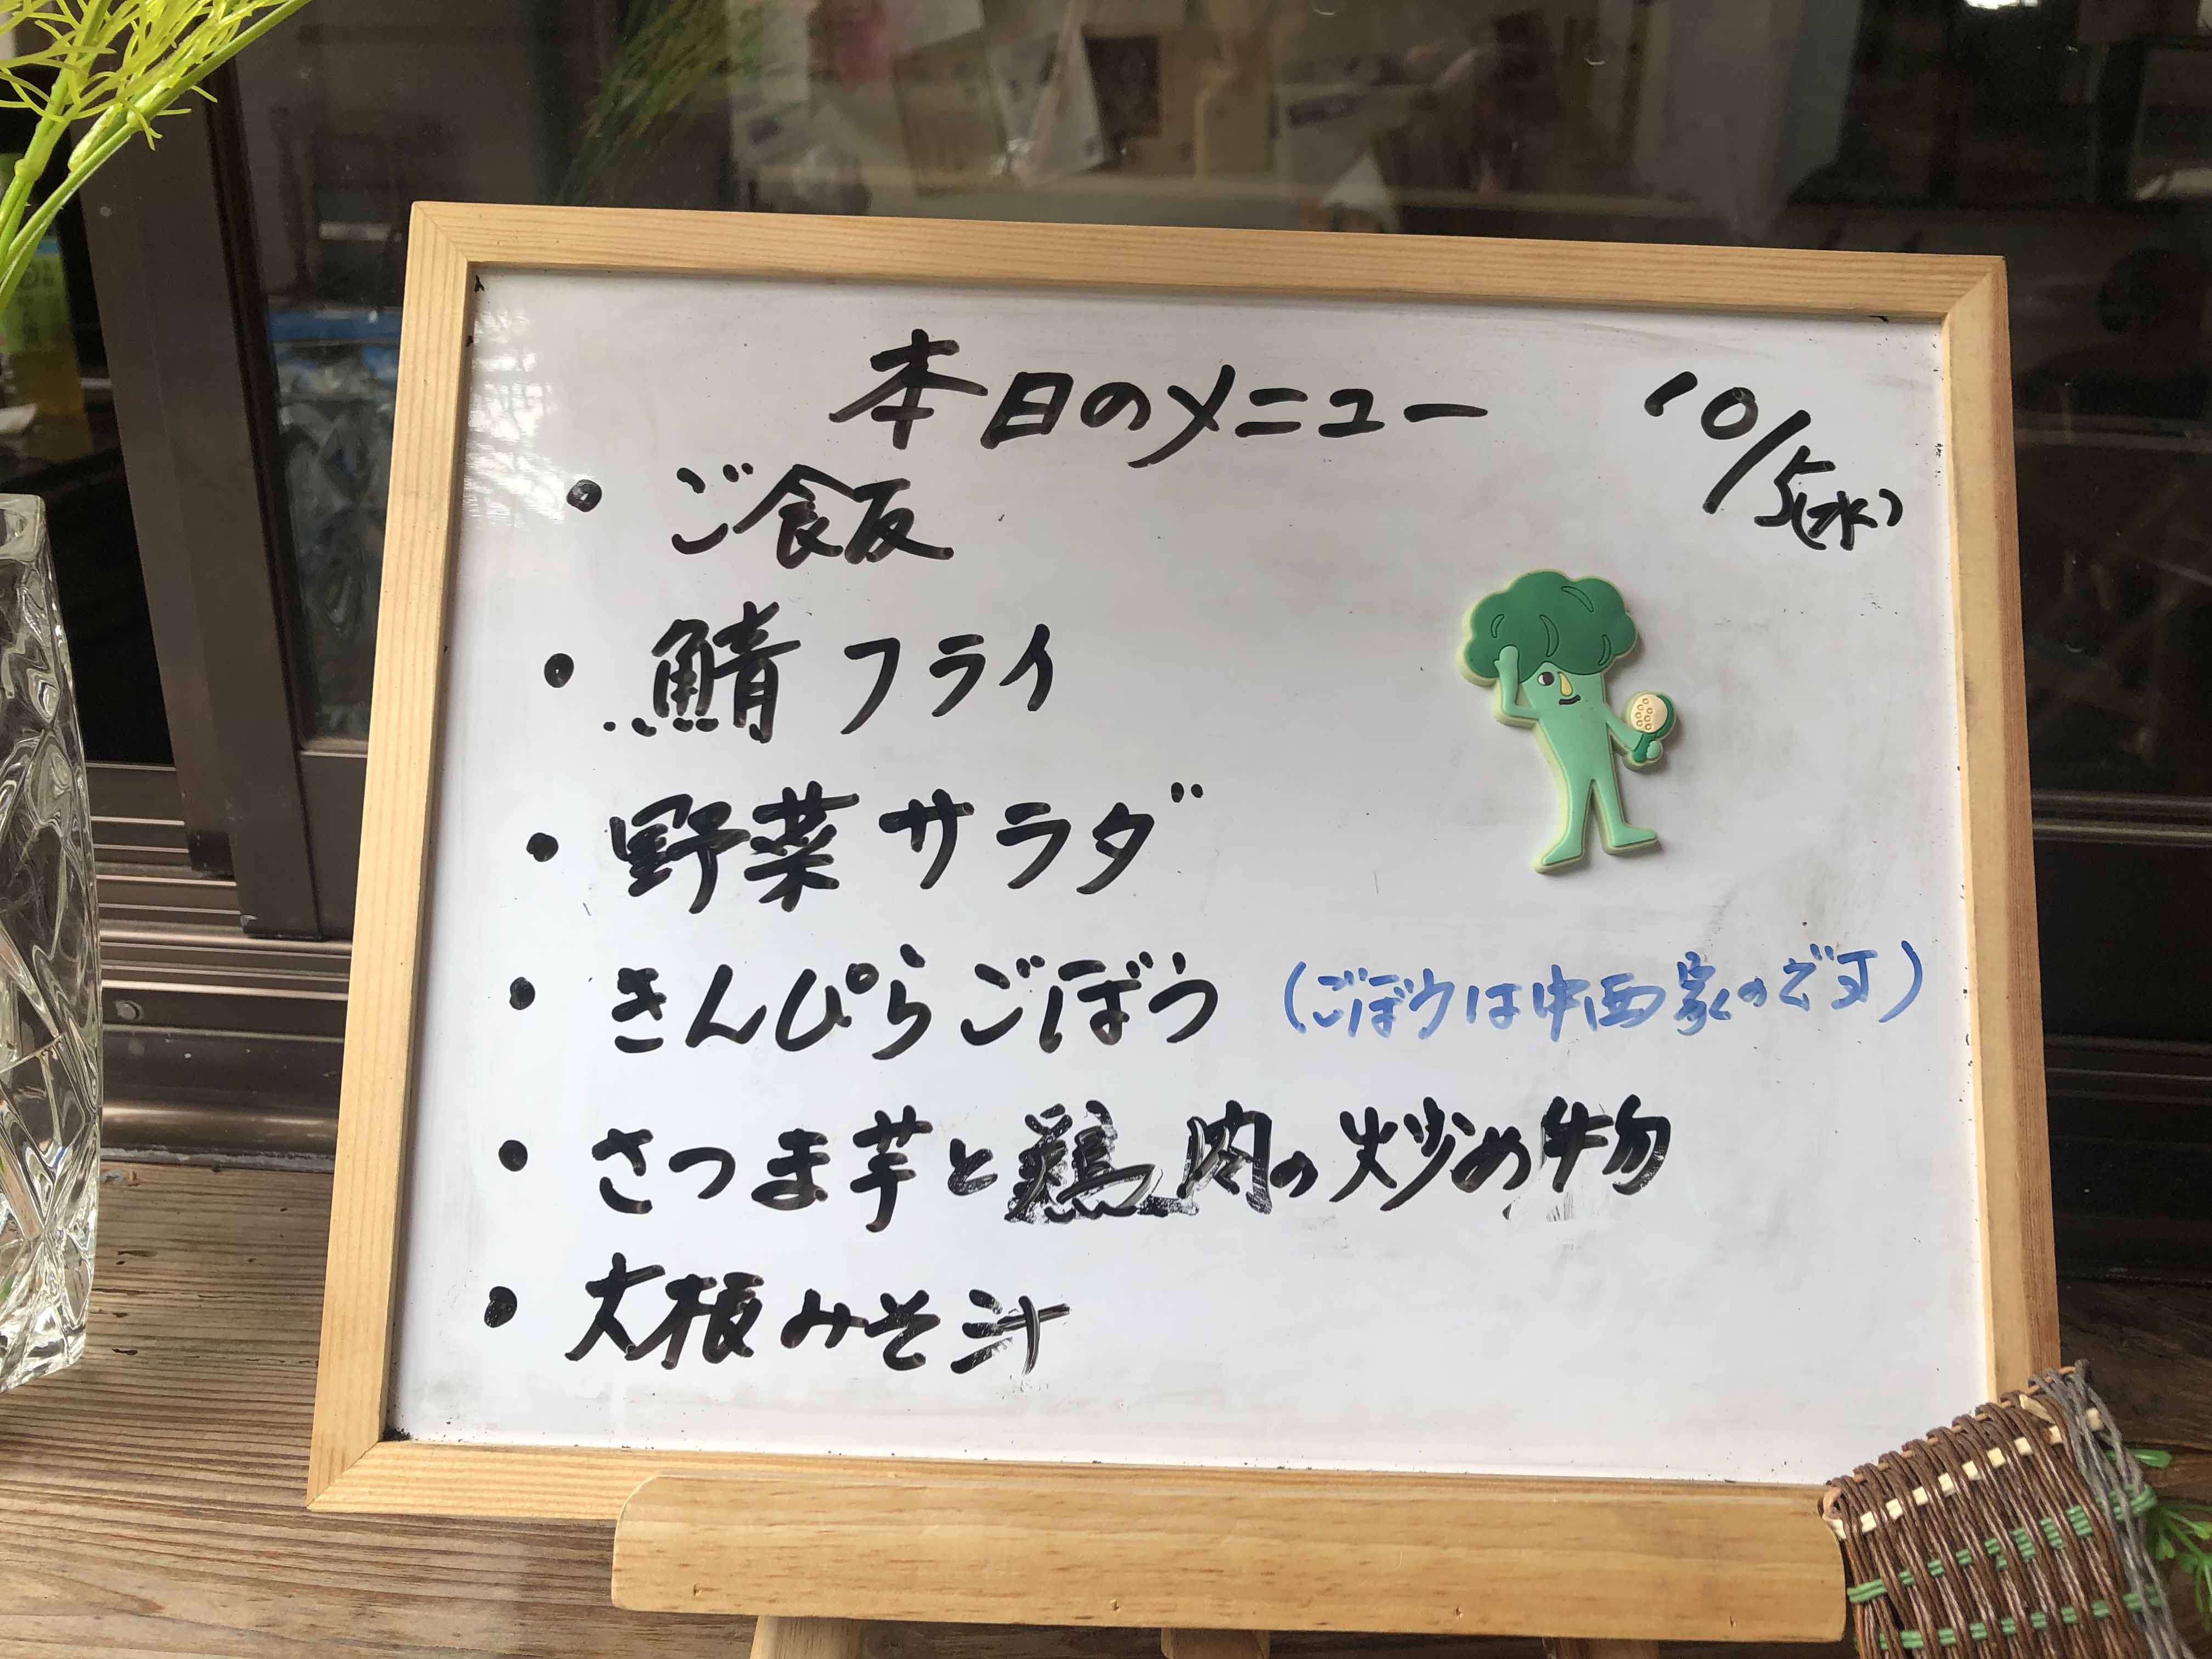 本日のメニュー 10/5(水)
・ご飯
・鯖フライ
・野菜サラダ
・きんぴらごぼう (ごぼうは中西家のです)
・さつま芋と鶏肉の炒め物
・大根みそ汁